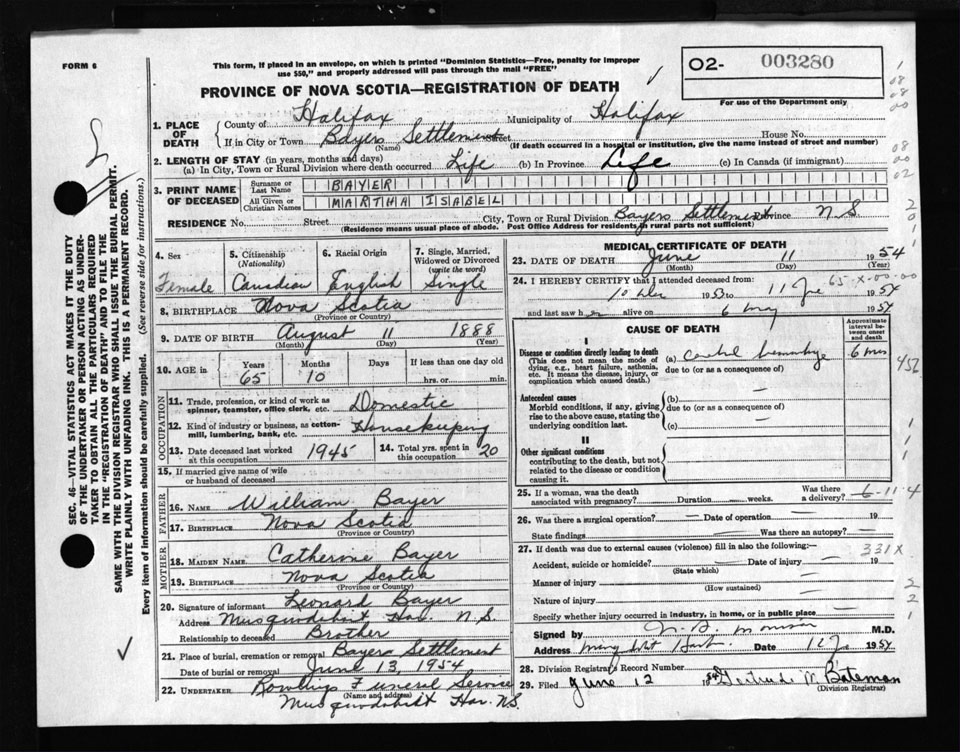 FORM 6
This form, if placed in an envelope, on which is printed "Dominion Statistics—Free, penalty for improper
use $50," and properly addressed will pass through the mail "FREE"
PROVINCE OF NOVA SCOTIA—REGISTRATION OF DEATH
O2- 003280
For use of the Department only
1. PLACE OF DEATH
County of Halifax Municipality of Halifax
If in City or Town Bayers Settlement Street House No.
(Name) (If death occurred in a hospital or institution, give the name instead of street and number)
2. LENGTH OF STAY (in years, months and days)
(a) In City, Town or Rural Division where death occurred Life (b) In Province Life (c) In Canada (if immigrant)
3. PRINT NAME OF DECEASED
Surname or Last Name BAYER
All Given or Christian Names MARTHA ISABEL
RESIDENCE No. Street City, Town or Rural Division Bayers Settlement Province N.S.
(Residence means usual place of abode. Post Office Address for residents in rural parts not sufficient)
4. Sex
Female
5. Citizenship
(Nationality)
Canadian
6. Racial Origin
English
7. Single, Married, Widowed or Divorced
(write the word)
Single
8. BIRTHPLACE Nova Scotia
(Province or Country)
9. DATE OF BIRTH August 11 1888
(Month) (Day) (Year)
10. AGE in Years Months Days If less than one day old
65 10 hrs. or min.
OCCUPATION
11. Trade, profession, or kind of work as
spinner, teamster, office clerk, etc. Domestic
12. Kind of industry or business, as cotton-
mill, lumbering, bank, etc. Housekeeping
13. Date deceased last worked
at this occupation 1945
14. Total yrs. spent in
this occupation 20
15. If married give name of wife
or husband of deceased
FATHER
16. NAME William Bayer
17. BIRTHPLACE Nova Scotia
(Province or Country)
MOTHER
18. MAIDEN NAME Catherine Bayer
19. BIRTHPLACE Nova Scotia
(Province or Country)
20. Signature of informant Leonard Bayer
Address Musquodoboit Har. N.S.
Relationship to deceased Brother
21. Place of burial, cremation or removal Bayers Settlement
Date of burial or removal June 13, 1954
22. UNDERTAKER Funeral Service
(Name and address)
Musquodoboit Har. N.S.
MEDICAL CERTIFICATE OF DEATH
23. DATE OF DEATH June 11 1954
(Month) (Day) (Year)
65-X-00-00
24. I HEREBY CERTIFY that I attended deceased from:
10 Dec 1953 to 11 1954
and last saw h alive on 6 May 1954
CAUSE OF DEATH
Approximate interval between onset and death
I
Disease or condition directly leading to death
(This does not mean the mode of dying, e.g., heart failure, asthenia, etc. It means the disease, injury, or complication which caused death.)
(a) hemorrhage
due to (or as a consequence of)
6
Antecedent causes
Morbid conditions, if any, giving rise to the above cause, stating the underlying condition last.
(b) —
due to (or as a consequence of)
(c) —
II
Other significant conditions
contributing to the death, but not related to the disease or condition causing it.
25. If a woman, was the death
associated with pregnancy? — Duration — weeks. Was there a delivery? —
6-11-4
26. Was there a surgical operation? — Date of operation — 19
State findings Was there an autopsy? —
27. If death was due to external causes (violence) fill in also the following:—
331X
Accident, suicide or homicide? Date of injury — 19
(State which)
Manner of injury —
(How sustained)
Nature of injury —
Specify whether injury occurred in industry, in home, or in public place
Signed by M.D.
Address Date 1954
28. Division Registrar's Record Number
29. Filed June 12 1954 Gertrude M. Bateman
(Division Registrar)
SEC. 46—VITAL STATISTICS ACT MAKES IT THE DUTY
OF THE UNDERTAKER OR PERSON ACTING AS UNDER-
TAKER TO OBTAIN ALL THE PARTICULARS REQUIRED
IN THE "REGISTRATION OF DEATH" AND TO FILE THE
SAME WITH THE DIVISION REGISTRAR WHO SHALL ISSUE THE BURIAL PERMIT.
WRITE PLAINLY WITH UNFADING INK. THIS IS A PERMANENT RECORD.
Every item of information should be carefully supplied. (See reverse side for instructions.)